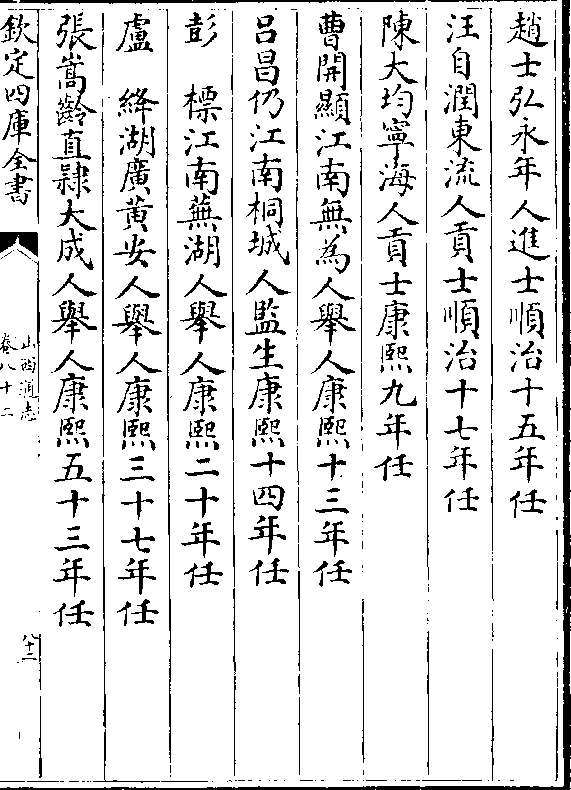 趙士弘永年人進士順治十五年任
汪自潤東流人貢士順治十七年任
陳大均寧海人貢士康熙九年任
曹開顯江南無為人舉人康熙十三年任
呂昌仍江南桐城人監生康熙十四年任
彭　標江南蕪湖人舉人康熙二十年任
盧　絳湖廣黄安人舉人康熙三十七年任
張嵩齡直隸大成人舉人康熙五十三年任
欽定四庫全書
山西通志
卷八十二
八十二